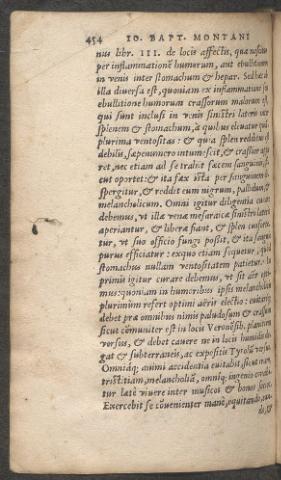 454 IO. BAPT. MONTANI
nus libr. III. de locis affectis, quæ nascitur
per inflammationē humorum, aut ebullitionem
in venis inter stomachum & hepar. Sed hæc ab
illa diuersa est, quoniam ex inflammatione seu
ebullitione humorum crassorum malorum est,
qui sunt inclusi in venis sinistri lateris inter
splenem & stomachum, à quibus eleuatur quā
plurima ventositas: & quia splen redditus est
debilis, sæpenumero intumescit, & crassior appa
ret, nec etiam ad se trahit fæcem sanguinis, si-
cut oportet: & ita fæx ista per sanguinem di-
spergitur, & reddit eum nigrum, pallidum, &
melancholicum. Omni igitur diligentia curare
debemus, vt illæ venæ mesaraicæ sinistri lateris
aperiantur, & liberæ fiant, & splen conforte-
tur, vt suo officio fungi possit, & ita sanguis
purus efficiatur: ex quo etiam sequetur, quòd
stomachus nullam ventositatem patiatur. In
primis igitur curare debemus, vt sit aër opti-
mus: quoniam in humoribus ipsis melancholicis
plurimùm refert optimi aëris electio: euitare
debet præ omnibus nimis paludosum & crassum
sicut cōmuniter est in locis Veronēsib. planitiem
versus, & debet cauere ne in locis humidis de-
gat & subterraneis, ac expositis Tyrolū versus.
Omniaq́; animi accidentia euitabit, sicut iram,
tristitiam, melancholiā, omniq́; ingenio
tur lætè viuere inter musicos & bonos socios.
Exercebit se cōuenienter manè, equitando, au-